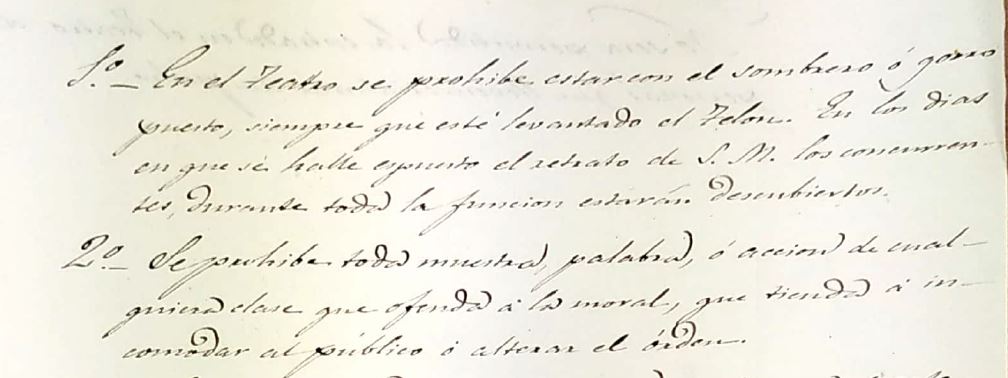 1º.– En el Teatro se prohibe estar con el sombrero ó gorro
puesto, siempre que esté levantado el Telon. En los dias
en que se halle espuesto el retrato de S. M. los concurren-
tes, durante toda la funcion estarán descubiertos.
2º– Se prohibe toda muestra, palabra, ó accion de cual-
quiera clase que ofenda á la moral, que tienda á in-
comodar al público ó alterar el órden.